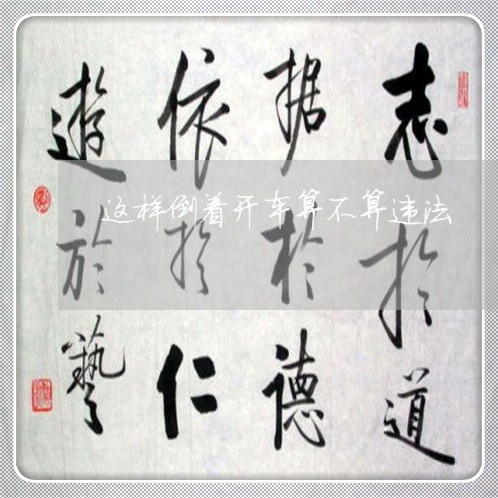 志於道
据於德
依於仁
遊於藝
这样倒着开车算不算违法